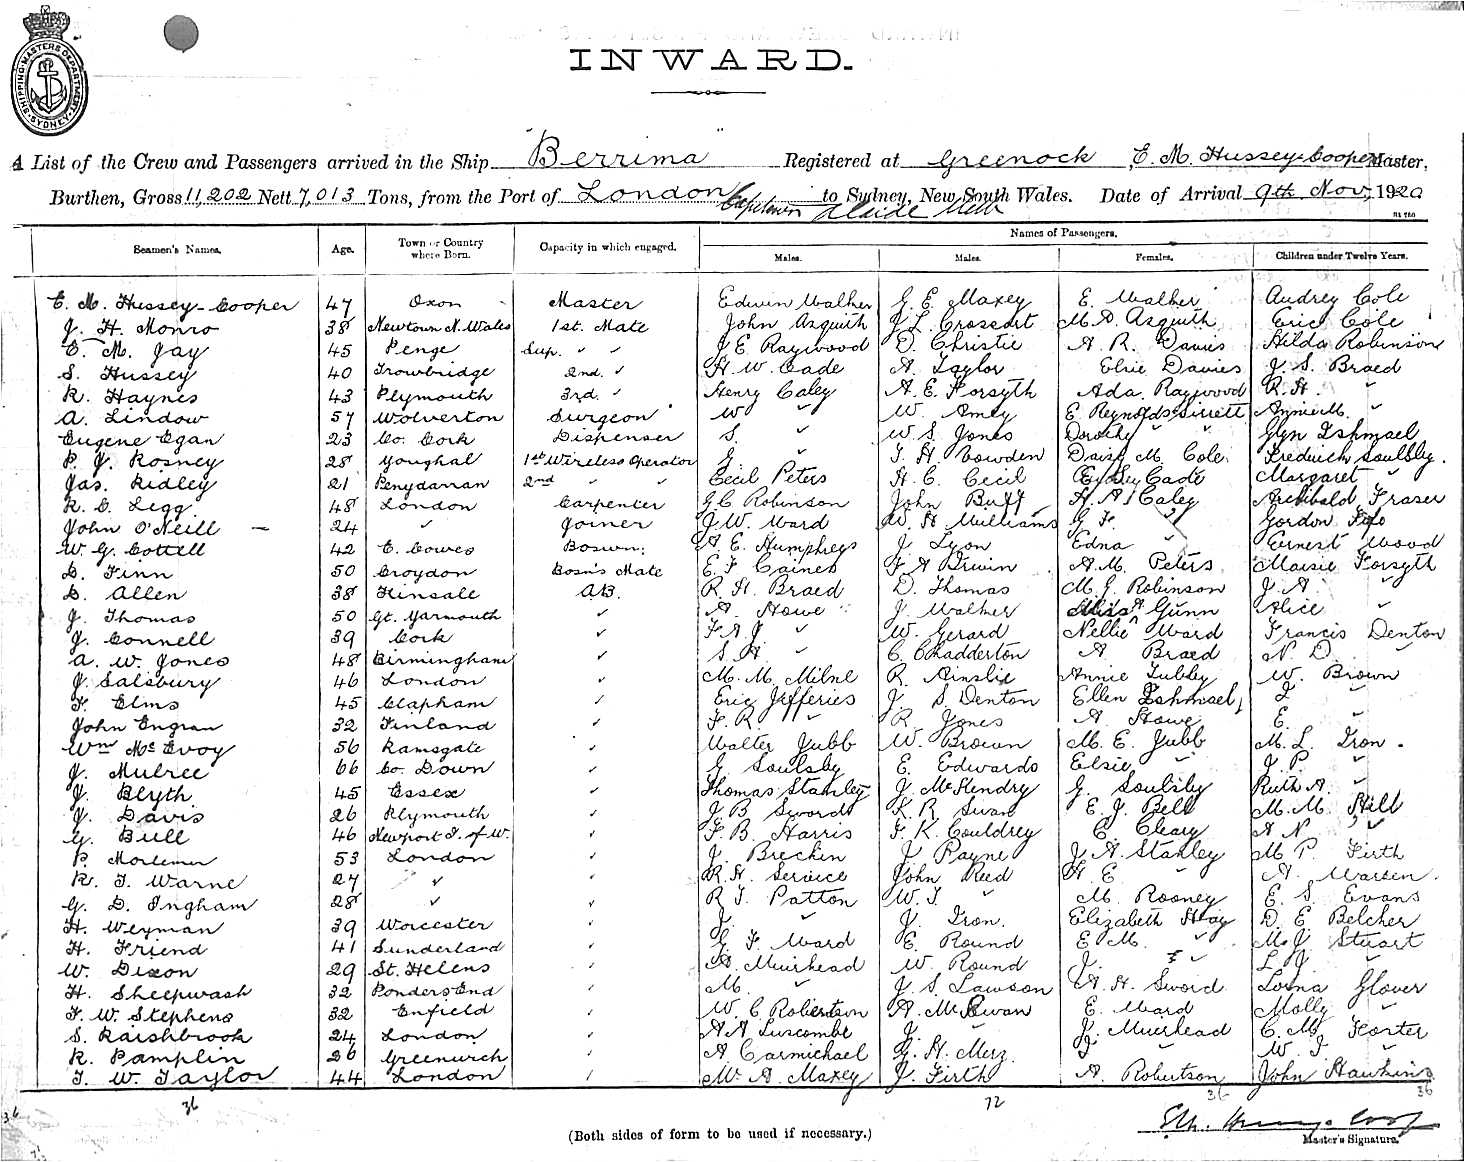 SHIPPING MASTERS DEPARTMENT SYDNEY
INWARD.
A List of the Crew and Passengers arrived in the Ship "Berrima" Registered at Greenock, E. M. Hussey-Cooper Master,
Burthen, Gross 11,202 Nett 7,013 Tons, from the Port of London Capetown to Sydney, New South Wales. Date of Arrival 9th Nov, 1920
Seamen's Names. Age. Town or Country where Born. Capacity in which engaged. Names of Passengers.
Males. Males. Females. Children under Twelve Years.
E. M. Hussey-Cooper 47 Oxon Master Edwin Walker G. E. Maxey E. Walker Audrey Cole
J. H. Monro 38 Newtown N. Wales 1st. Mate John Asquith J. L. Crossart M. A. Asquith Eric Cole
E. M. Jay 45 Penge Sup. " " J E Raywood D. Christie A. R. Davis Hilda Robinson
S. Hussey 40 Trowbridge 2nd. " H. W. Cade A. Taylor Elsie Davies J. S. Braed
R. Haynes 43 Plymouth 3rd. " Henry Caley A. E. Forsyth Ada Raywood R. H. "
A. Lindow 57 Wolverton Surgeon W " W. Amey E. Reynolds Sirrett Annie M. "
Eugene Egan 23 Co. Cork Dispenser S. " W. S. Jones Dorothy " " Glyn Ishmael
P. J. Rosney 28 Youghal 1st Wireless Operator G. " T. H. Cowden Daisy M. Cole Frederick Soulsby.
Jas. Ridley 21 Penydarran 2nd " " Cecil Peters H. C. Cecil Cade Margaret "
R. C. Legg 48 London Carpenter G. C. Robinson John Buff H. A. Caley Archibald Fraser
John O'Neill — 24 " Joiner J. W. Ward W. H Williams G. F. " Gordon Fife
W. G. Cottell 42 E. Cowes Boswn: A. E. Humphreys J. Lyon Edna " Ernest Wood
D. Finn 50 Croydon Bosn's Mate E. F. Caines F A Irwin A. M. Peters Maisie Forsyth
D. Allen 38 Kinsale AB. R. H. Braed D. Thomas M. J. Robinson J. A. "
J. Thomas 50 Gt. Yarmouth " A Howe J. Walker Miss A Gunn Alice "
J. Connell 39 Cork " F A J " W. Gerard Nellie Ward Francis Denton
A. W. Jones 48 Birmingham " S. A " C. Chadderton A Braed N. D. "
J. Salsbury 46 London " M. M. Milne R. Ainslie Annie Tubby W. Brown
F. Elms 45 Clapham " Eric Jefferies J. S. Denton Ellen Ishmael I "
John Engran 32 Finland " F. R. " R. Jones A Howe E. "
Wm McEvoy 56 Ramsgate " Walter Jubb W. Brown M. E. Jubb M. L. Iron.
J. Mulree 66 Co. Down " G. Soulsby E. Edwards Elsie " J. P. "
J. Blyth 45 Essex " Thomas Stanley J. McHendry G. Soulsby Ruth A. "
J. Davis 26 Plymouth " J B Sword K. R. Swan E. J. Bell M. M. Hill
G. Bull 46 Newport I. of W. " F. B. Harris F. K. Couldrey C. Cleary A N "
P. Mortemer 53 London " J. Brechin J. Payne J A. Stanley M P. Firth
R. J. Warne 27 " " R. H. Service John Reed H. E " A. Warsen.
G. D. Ingham 28 " " R J. Patton W. J. " M. Rooney E. S. Evans
H. Weyman 39 Worcester " J. " J. Iron. Elizabeth Hay D. E Belcher
H. Friend 41 Sunderland " G. F. Ward E. Round E M. " M. J Stuart
W. Dixon 29 St. Helens " A. Muirhead W. Round J. F " L. J. "
H. Sheepwash 32 Ponders End " M. " J. S. Lawson A. H. Sword Lorna Glover
F. W. Stephens 32 Enfield " W. C. Robertson A. McEwan E. Ward Molly "
S. Raishbrook 24 London " A A Luscombe J. " J. Muirhead C. M. Forter
R. Pamplin 26 Greenwich " A. Carmichael G. H. Merz. I. " W J. "
T. W. Taylor 44 London " M. A. Maxey J. Firth A. Robertson John Hawkins
36 36 72 36 36
(Both sides of form to be used if necessary.)
Master's Signature.